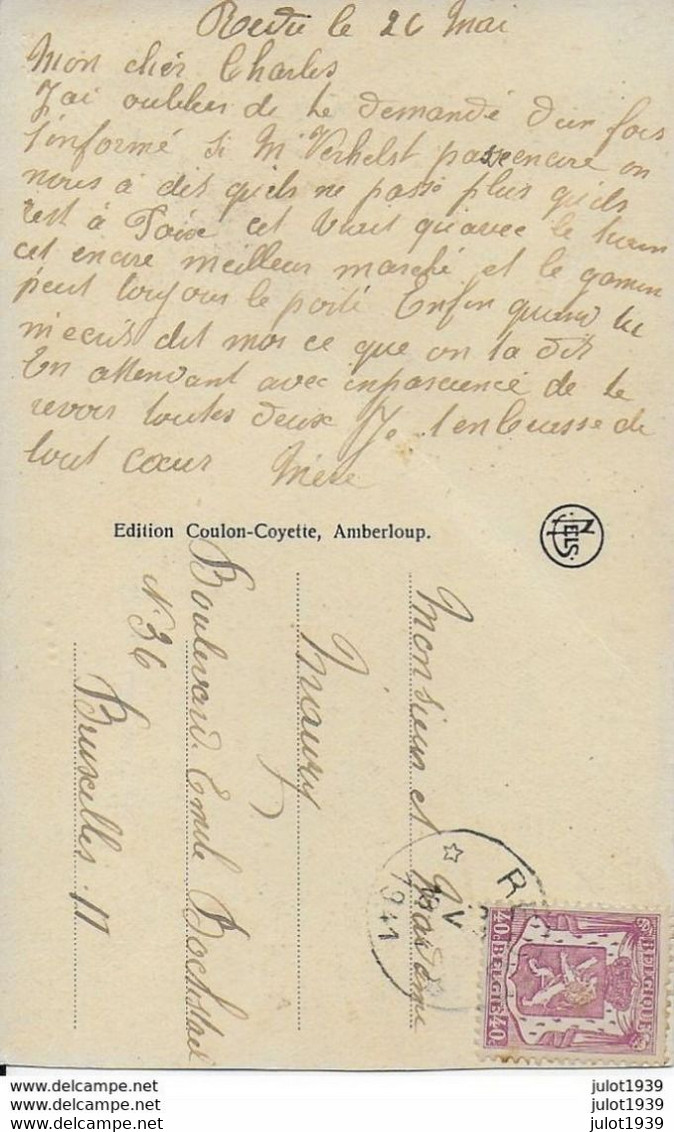 Redu le 26 Mai
Mon cher Charles
J'ai oublier de te demandé d'un fois
t'informé si Mr Verhelst passe encore on
nous a dit qu'ils ne passe plus qu'ils
rest à Paix cet vrait qu'avec le train
cet encore meilleur marché et le gamin
peut toujous le porté Enfin quand tu
m'ecris dit moi ce que on ta dit
En attendant avec inpascience de te
revoir toutes deux Je t'embrasse de
tout cœur Mère
Edition Coulon-Coyette, Amberloup.
NELS
Monsieur et Madame
Maury
Boulevard Emile Bockstael
N 36
Bruxelles II
R
V
1941
40c BELGIE 40c
BELGIQUE
www.delcampe.net julot1939
www.delcampe.net julot1939
www.delcampe.net julot1939